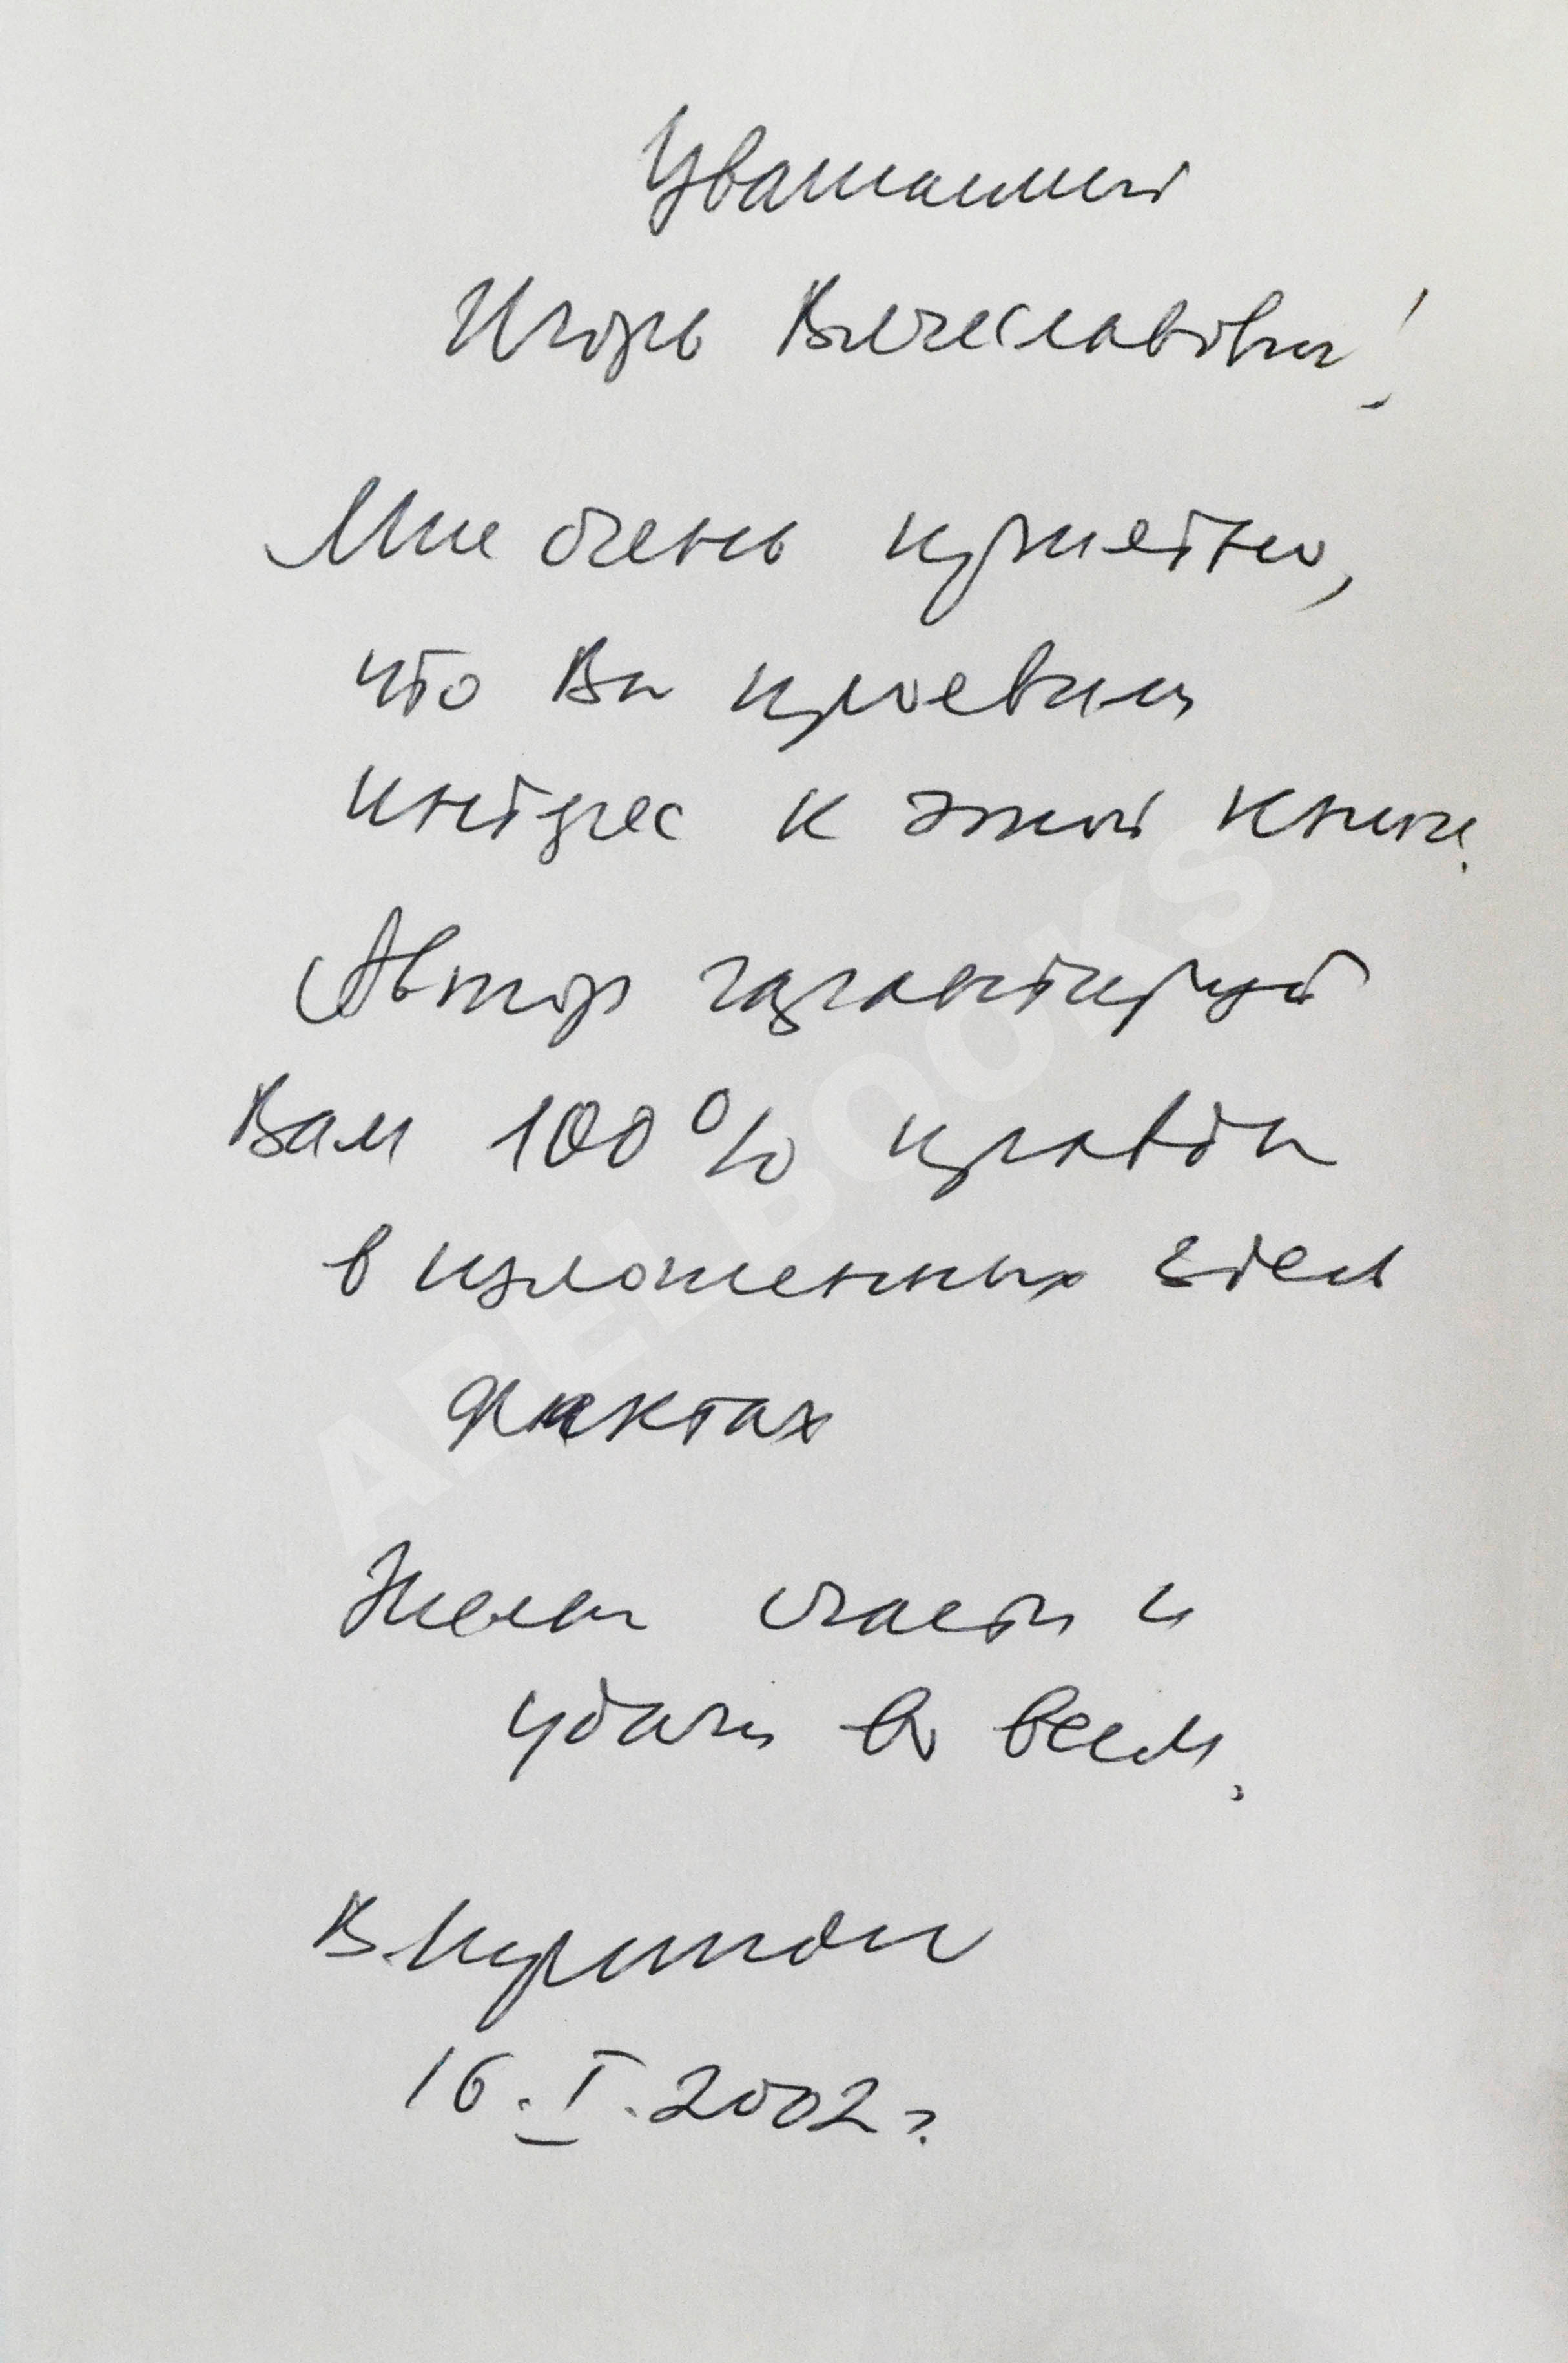 Уважаемый
Игорь Вячеславович!
Мне очень приятно,
что Вы проявили
интерес к этой книге.
Автор гарантирует
Вам 100% правды
в изложенных здесь
фактах
Желаю счастья и
удачи во всем.
В.
16.I.2002г.
ABELBOOKS